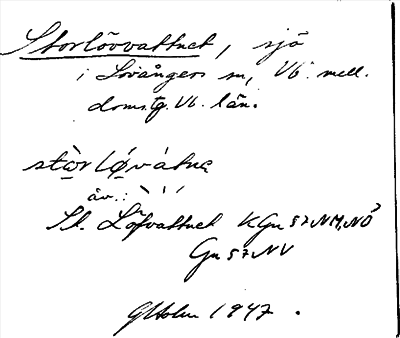 Storlövvattnet, sjö
i Lövångers sn, Vb. mell.
doms.tg. Vb. län.
stòrlø̀vátnɐ
äv.:
St. Löfvattnet KGu 57 NM, NÖ
Gu 57 NV
G Holm 1947.